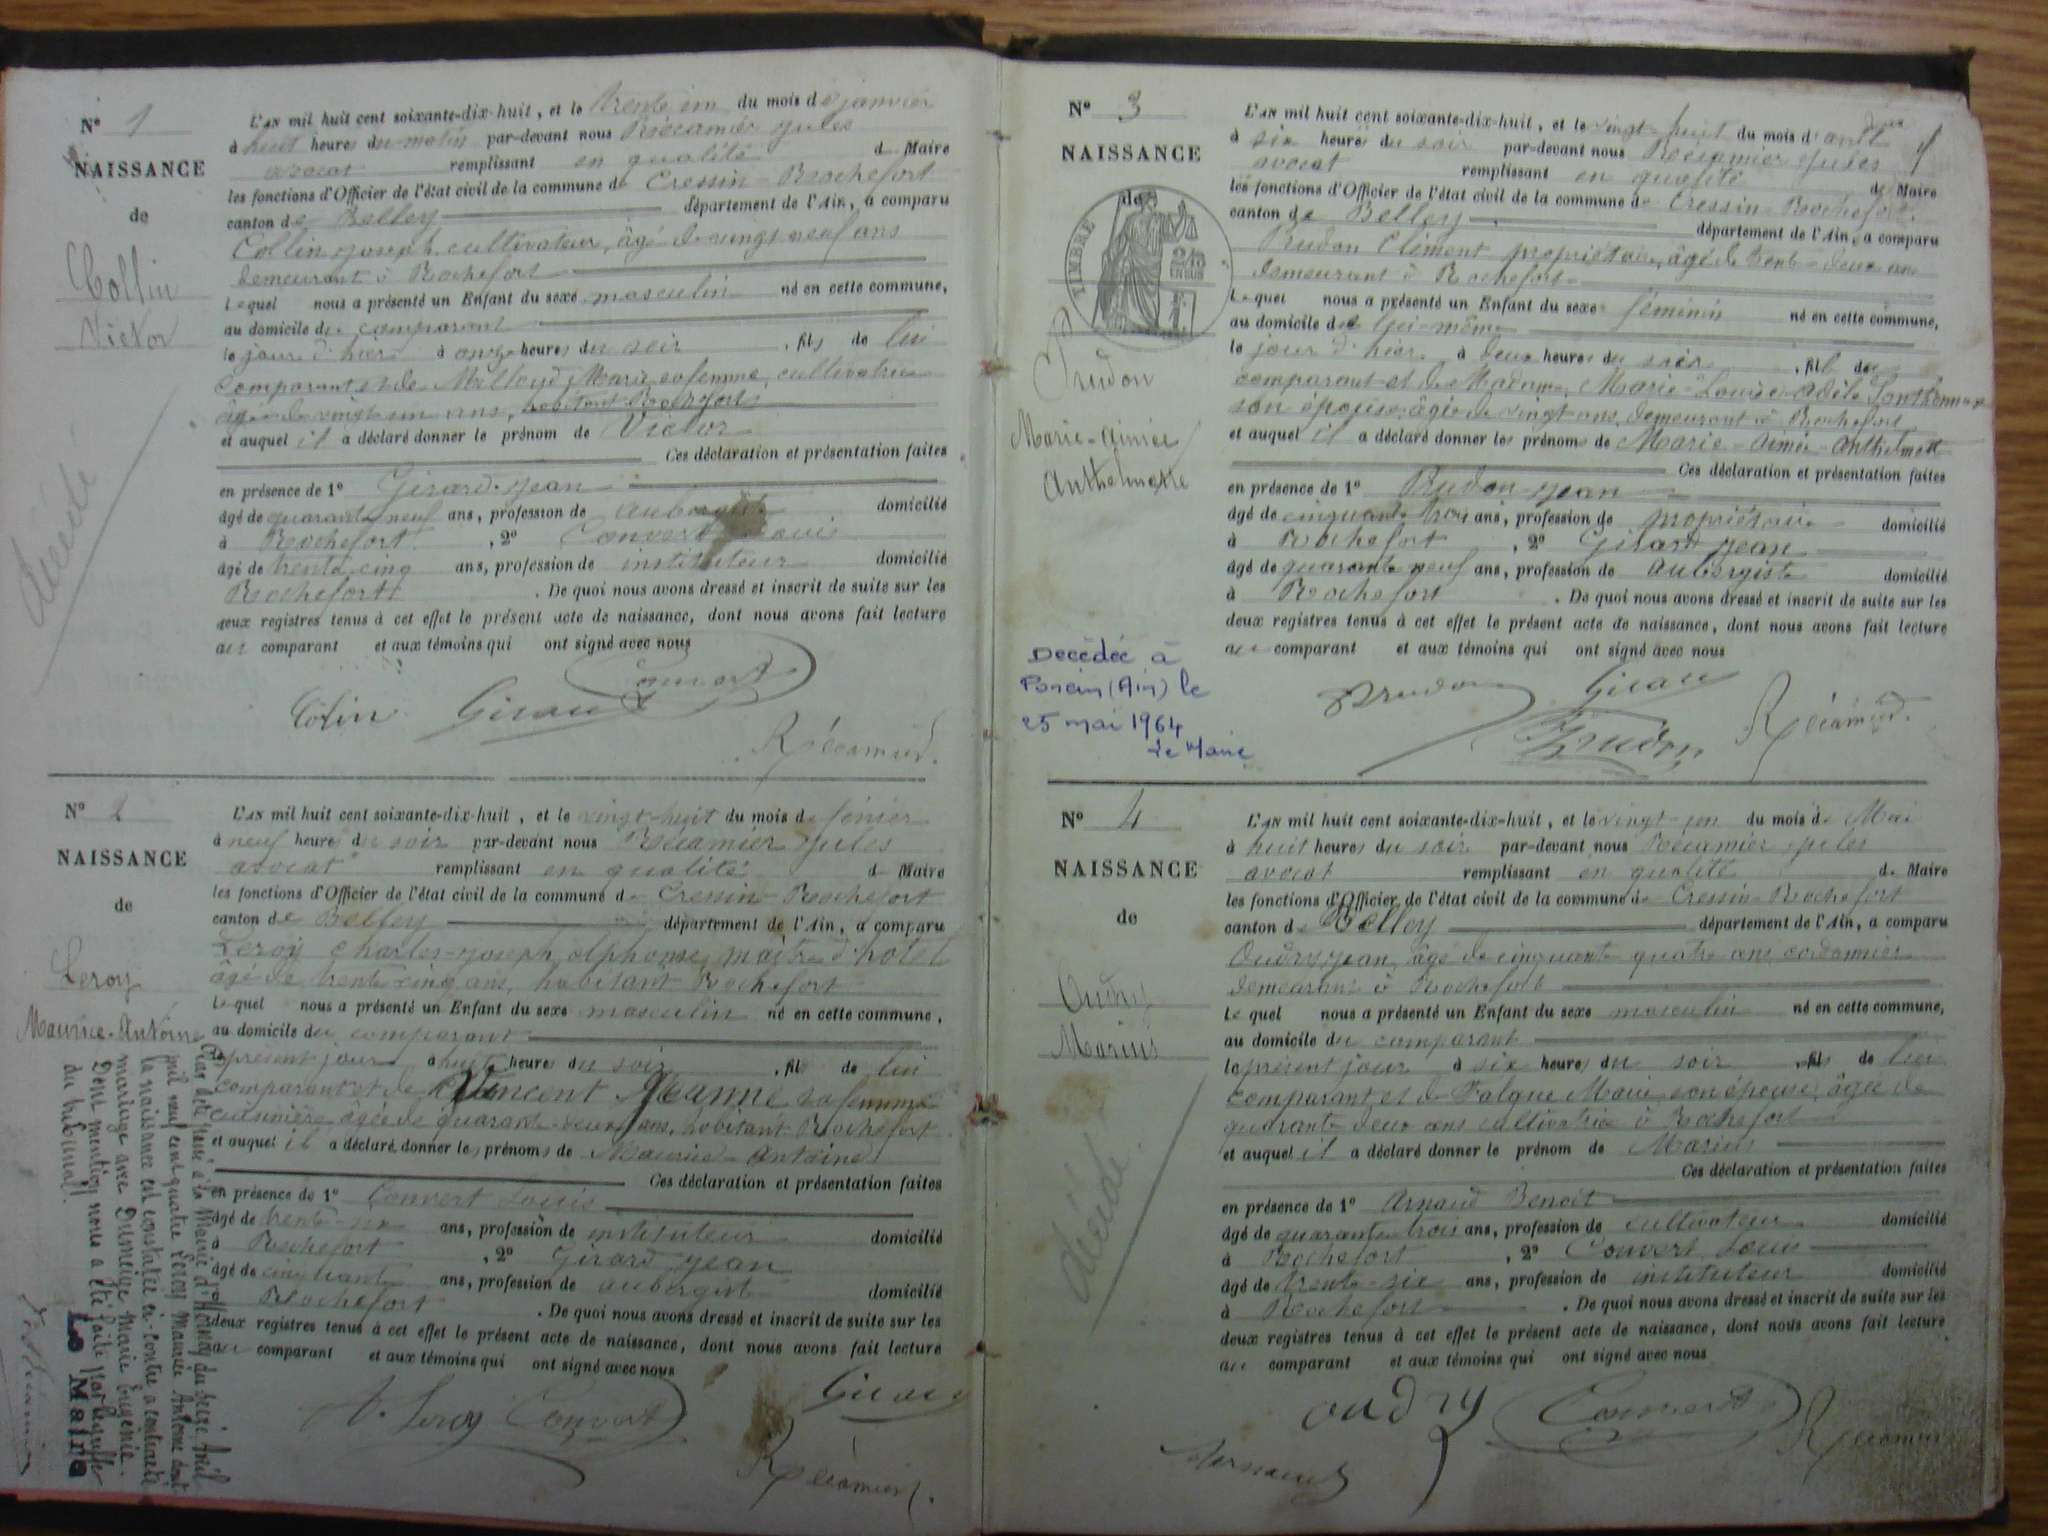 N° 1
NAISSANCE
de
Collin
Victor
décédé
L'AN mil huit cent soixante-dix-huit, et le trente un du mois de janvier
à huit heures du matin par-devant nous Récamier Jules
avocat remplissant en qualité de Maire
les fonctions d'Officier de l'état civil de la commune de Cressin-Rochefort
canton de Belley département de l'Ain, a comparu
Collin Joseph, cultivateur, âgé de vingt neuf ans
demeurant à Rochefort
Lequel nous a présenté un Enfant du sexe masculin né en cette commune,
au domicile du comparant
le jour d'hier à onze heures du soir, fils de lui
comparant et de Marie, sa femme, cultivatrice
âgée de vingt un ans, habitant Rochefort
et auquel il a déclaré donner le prénom de Victor
Ces déclaration et présentation faites
en présence de 1° Girard Jean
âgé de quarante neuf ans, profession de aubergiste domicilié
à Rochefort, 2° Convert Louis
âgé de trente cinq ans, profession de instituteur domicilié
Rochefort. De quoi nous avons dressé et inscrit de suite sur les
deux registres tenus à cet effet le présent acte de naissance, dont nous avons fait lecture
au comparant et aux témoins qui ont signé avec nous
Colin Girard Convert
Récamier.
N° 2
NAISSANCE
de
Leroy
Maurice-Antoine
L'AN mil huit cent soixante-dix-huit, et le vingt-huit du mois de février
à neuf heures du soir par-devant nous Récamier Jules
avocat remplissant en qualité de Maire
les fonctions d'Officier de l'état civil de la commune de Cressin-Rochefort
canton de Belley département de l'Ain, a comparu
Leroy Charles-Joseph alphonse, maître d'hôtel
âgé de trente-cinq ans, habitant Rochefort
Lequel nous a présenté un Enfant du sexe masculin né en cette commune,
au domicile du comparant
le présent jour à huit heures du soir, fils de lui
comparant et de Vincent Jeanne sa femme
cuisinière âgée de quarante-deux ans, habitant Rochefort
et auquel il a déclaré donner les prénoms de Maurice-Antoine
Ces déclaration et présentation faites
en présence de 1° Convert Louis
âgé de trente-six ans, profession de instituteur domicilié
à Rochefort, 2° Girard Jean
âgé de cinquante ans, profession de aubergiste domicilié
Rochefort. De quoi nous avons dressé et inscrit de suite sur les
deux registres tenus à cet effet le présent acte de naissance, dont nous avons fait lecture
au comparant et aux témoins qui ont signé avec nous
A. Leroy Convert Girard
Récamier.
Par acte passé à la Mairie d' du seize Avril
mil neuf cent quatre Leroy Maurice Antoine dont
la naissance est constatée ci-contre a contracté
mariage avec Marie Eugénie.
Dont mention nous a été faite par le greffe
du tribunal.
Le Maire
N° 3
NAISSANCE
de
TIMBRE
Prudon
Marie-Aimée
Anthelmette
Décédée à
Poncin (Ain) le
25 mai 1964
Le Maire
L'AN mil huit cent soixante-dix-huit, et le vingt-huit du mois d'avril
à six heures du soir par-devant nous Récamier Jules
avocat remplissant en qualité de Maire
les fonctions d'Officier de l'état civil de la commune de Cressin-Rochefort.
canton de Belley département de l'Ain, a comparu
Prudon Clément propriétaire, âgé de trente-deux ans
demeurant à Rochefort
Lequel nous a présenté un Enfant du sexe féminin né en cette commune,
au domicile de lui-même
le jour d'hier à deux heures du soir, fille du
comparant et de Madame Marie-Louise-Adèle
son épouse, âgée de vingt ans, demeurant à Rochefort
et auquel il a déclaré donner les prénoms de Marie-Aimée-Anthelmette
Ces déclaration et présentation faites
en présence de 1° Prudon Jean
âgé de cinquante trois ans, profession de propriétaire domicilié
à Rochefort, 2° Girard Jean
âgé de quarante neuf ans, profession de aubergiste domicilié
à Rochefort. De quoi nous avons dressé et inscrit de suite sur les
deux registres tenus à cet effet le présent acte de naissance, dont nous avons fait lecture
au comparant et aux témoins qui ont signé avec nous
Prudon Girard
Prudon Récamier.
N° 4
NAISSANCE
de
Oudry
Marius
décédé.
L'AN mil huit cent soixante-dix-huit, et le vingt-un du mois de Mai
à huit heures du soir par-devant nous Récamier Jules
avocat remplissant en qualité de Maire
les fonctions d'Officier de l'état civil de la commune de Cressin-Rochefort
canton de Belley département de l'Ain, a comparu
Oudry Jean, âgé de cinquante quatre ans, cordonnier
demeurant à Rochefort
Lequel nous a présenté un Enfant du sexe masculin né en cette commune,
au domicile du comparant
le présent jour à six heures du soir, fils de lui
comparant et de Falque Marie son épouse, âgée de
quarante deux ans cultivatrice à Rochefort
et auquel il a déclaré donner le prénom de Marius
Ces déclaration et présentation faites
en présence de 1° Arnaud Benoit
âgé de quarante trois ans, profession de cultivateur domicilié
à Rochefort, 2° Convert Louis
âgé de trente-six ans, profession de instituteur domicilié
à Rochefort. De quoi nous avons dressé et inscrit de suite sur les
deux registres tenus à cet effet le présent acte de naissance, dont nous avons fait lecture
au comparant et aux témoins qui ont signé avec nous
oudry Convert
Arnaud Récamier